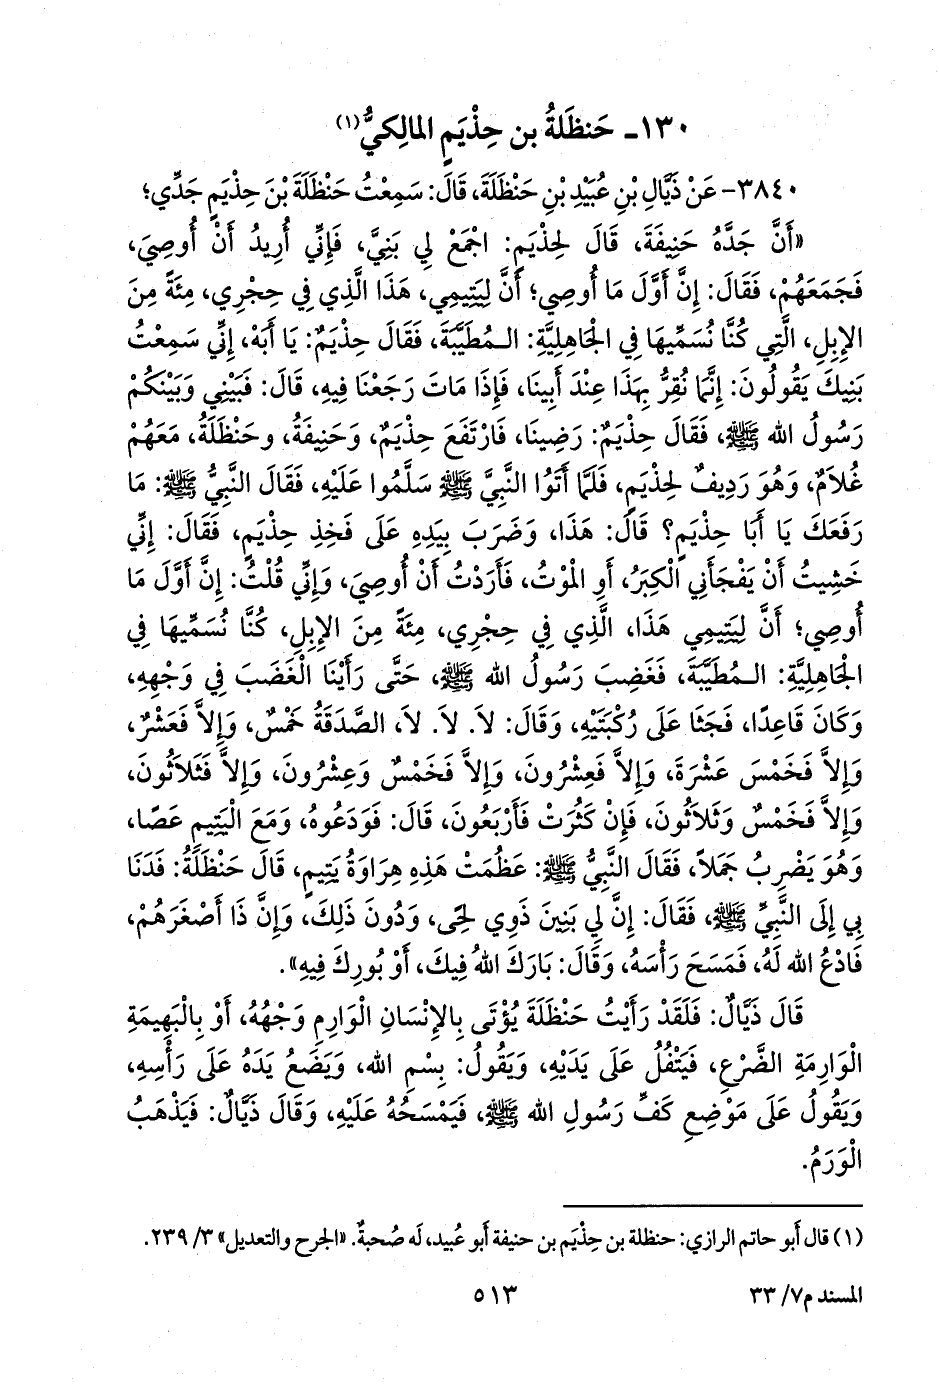 ١٣٠ـ حَنظَلةُ بن حِذْيَمٍ المالِكيُّ(١)
٣٨٤٠- عَنْ ذَيَّالِ بْنِ عُبَيْدِ بْنِ حَنْظَلَةَ، قَالَ: سَمِعْتُ حَنْظَلَةَ بْنَ حِذْيَمٍ جَدِّي؛
«أَنَّ جَدَّهُ حَنِيفَةَ، قَالَ لِحِذْيَمٍ: اجْمَعْ لِي بَنِيَّ، فَإِنِّي أُرِيدُ أَنْ أُوصِيَ،
فَجَمَعَهُمْ، فَقَالَ: إِنَّ أَوَّلَ مَا أُوصِي؛ أَنَّ لِيَتِيمِي، هَذَا الَّذِي فِي حِجْرِي، مِئَةً مِنَ
الإِبِلِ، الَّتِي كُنَّا نُسَمِّيهَا فِي الْجَاهِلِيَّةِ: الـمُطَيَّبَةَ، فَقَالَ حِذْيَمٌ: يَا أَبَهْ، إِنِّي سَمِعْتُ
بَنِيكَ يَقُولُونَ: إِنَّمَا نُقِرُّ بِهَذَا عِنْدَ أَبِينَا، فَإِذَا مَاتَ رَجَعْنَا فِيهِ، قَالَ: فَبَيْنِي وَبَيْنَكُمْ
رَسُولُ الله ﷺ، فَقَالَ حِذْيَمٌ: رَضِينَا، فَارْتَفَعَ حِذْيَمٌ، وَحَنِيفَةُ، وحَنْظَلَةُ، مَعَهُمْ
غُلَامٌ، وَهُوَ رَدِيفٌ لِحِذْيَمٍ، فَلَمَّا أَتَوُا النَّبِيَّ ﷺ سَلَّمُوا عَلَيْهِ، فَقَالَ النَّبِيُّ ﷺ: مَا
رَفَعَكَ يَا أَبَا حِذْيَمٍ؟ قَالَ: هَذَا، وَضَرَبَ بِيَدِهِ عَلَى فَخِذِ حِذْيَمٍ، فَقَالَ: إِنِّي
خَشِيتُ أَنْ يَفْجَأَنِي الْكِبَرُ، أَوِ الْمَوْتُ، فَأَرَدْتُ أَنْ أُوصِيَ، وَإِنِّي قُلْتُ: إِنَّ أَوَّلَ مَا
أُوصِي؛ أَنَّ لِيَتِيمِي هَذَا، الَّذِي فِي حِجْرِي، مِئَةً مِنَ الإِبِلِ، كُنَّا نُسَمِّيهَا فِي
الْجَاهِلِيَّةِ: الـمُطَيَّبَةَ، فَغَضِبَ رَسُولُ الله ﷺ، حَتَّى رَأَيْنَا الْغَضَبَ فِي وَجْهِهِ،
وَكَانَ قَاعِدًا، فَجَثَا عَلَى رُكْبَتَيْهِ، وَقَالَ: لاَ. لاَ. لاَ، الصَّدَقَةُ خَمْسٌ، وَإِلاَّ فَعَشْرٌ،
وَإِلاَّ فَخَمْسَ عَشْرَةَ، وَإِلاَّ فَعِشْرُونَ، وَإِلاَّ فَخَمْسٌ وَعِشْرُونَ، وَإِلاَّ فَثَلاَثُونَ،
وَإِلاَّ فَخَمْسٌ وَثَلاَثُونَ، فَإِنْ كَثُرَتْ فَأَرْبَعُونَ، قَالَ: فَوَدَعُوهُ، وَمَعَ الْيَتِيمِ عَصًا،
وَهُوَ يَضْرِبُ جَمَلاً، فَقَالَ النَّبِيُّ ﷺ: عَظُمَتْ هَذِهِ هِرَاوَةُ يَتِيمٍ، قَالَ حَنْظَلَةُ: فَدَنَا
بِي إِلَى النَّبِيِّ ﷺ، فَقَالَ: إِنَّ لِي بَنِينَ ذَوِي لِحًى، وَدُونَ ذَلِكَ، وَإِنَّ ذَا أَصْغَرَهُمْ،
فَادْعُ الله لَهُ، فَمَسَحَ رَأْسَهُ، وَقَالَ: بَارَكَ اللهُ فِيكَ، أَوْ بُورِكَ فِيهِ».
قَالَ ذَيَّالٌ: فَلَقَدْ رَأَيْتُ حَنْظَلَةَ يُؤْتَى بِالإِنْسَانِ الْوَارِمِ وَجْهُهُ، أَوْ بِالْبَهِيمَةِ
الْوَارِمَةِ الضَّرْعِ، فَيَتْفُلُ عَلَى يَدَيْهِ، وَيَقُولُ: بِسْمِ الله، وَيَضَعُ يَدَهُ عَلَى رَأْسِهِ،
وَيَقُولُ عَلَى مَوْضِعِ كَفِّ رَسُولِ الله ﷺ، فَيَمْسَحُهُ عَلَيْهِ، وَقَالَ ذَيَّالٌ: فَيَذْهَبُ
الْوَرَمُ.
(١) قال أَبو حاتم الرازي: حنظلة بن حِذْيَم بن حنيفة أَبو عُبيد، لَه صُحبةٌ. «الجرح والتعديل» ٣/ ٢٣٩.
المسند م٧/ ٣٣
٥١٣